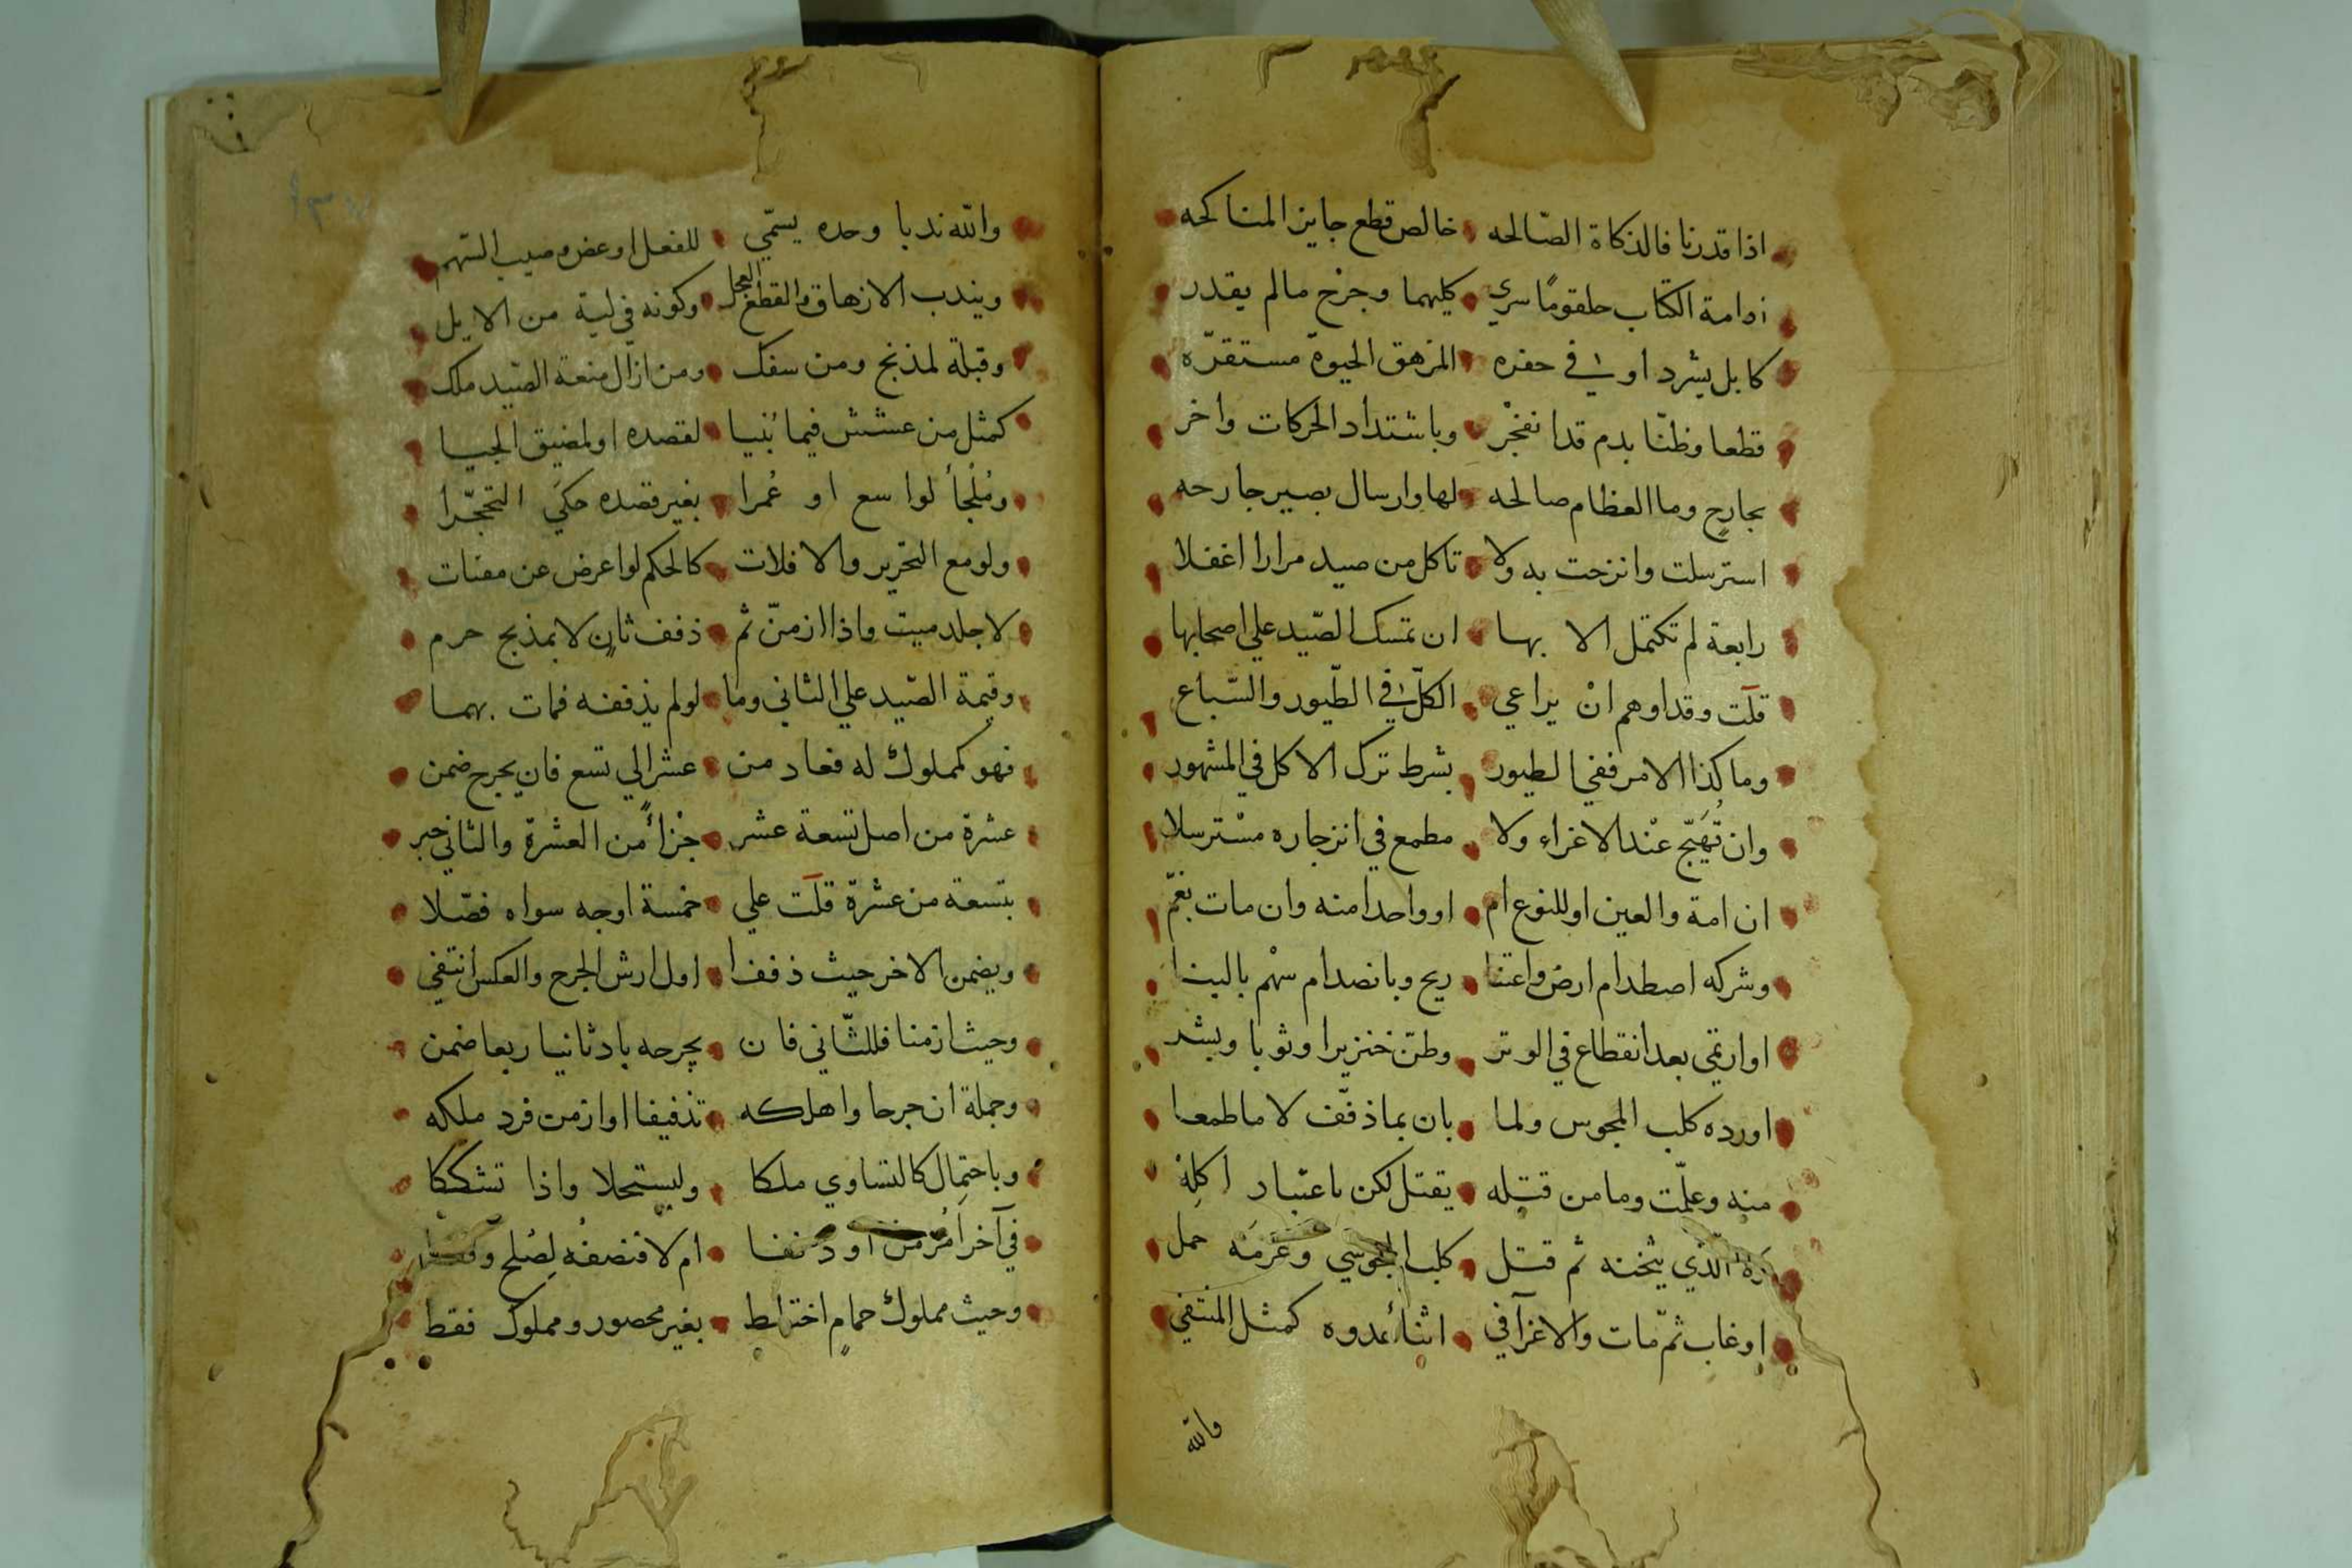 اذا قدرنا فالذكاة الصالحه خالص قطع جايز المناكحه
امة الكتاب حلقوما سري كليهما وجرح مالم يقدر
كابل يشرد او في حفره المزهق الحيوة مستقره
قطعا وظنا بدم قد انفجر وباشتداد الحركات واخر
بجارح وما العظام صالحه لها وارسال بصير جارحه
استرسلت وانزحت به ولا تاكل من صيد مرارا اغفلا
رابعة لم تكتمل الا بها ان تمسك الصيد علي اصحابها
قلت وقد اوهم ان يراعي الكل في الطيور والسباع
وما كذا الامر ففي الطيور بشرط ترك الاكل في المشهور
وان تهيج عند الاغراء ولا مطمع في انزجاره مسترسلا
ان امة والعين او للنوع ام او واحدا منه وان مات بغم
وشركه اصطدام ارض واعتنا ريح وبانصدام سهم بالبنا
او ارتمي بعد انقطاع في الوتر وظن خنزيرا وثوبا وبشر
اورده كلب المجوس ولما بان بما ذفف لا ما طمعا
منه وعلمت وما من قتله يقتل لكن باعتبار اكله
الذي يثخنه ثم قتل كلب المجوسي وغرمه حمل
او غاب ثم مات والاغرآ في اثناء عدوه كمثل المنتفي
والله
والله ندبا وحده يسمي للفعل او عض وصيب السهم
ويندب الازهاق والقطع العجل وكونه في لبة من الابل
وقبلة لمذبح ومن سفك ومن ازال منعة الصيد ملك
كمثل من عشش فيما بنيا لقصده او لمضيق الجيا
وملجأ لواسع او عمرا بغير قصده حكي التحجرا
ولو مع التحرير والافلات كالحكم لو اعرض عن مفتات
لا جلد ميت واذا ازمن ثم ذفف ثان لا بمذبح حرم
وقيمة الصيد علي الثاني وما لو لم يذففه فمات بهما
فهو كمملوك له فعاد من عشر الي تسع فان يجرح ضمن
عشرة من اصل تسعة عشر جزأ من العشرة والثاني جبر
بتسعة من عشرة قلت علي خمسة اوجه سواه فصلا
ويضمن الاخر حيث ذففا اول ارش الجرح والعكس انتفي
وحيث ازمنا فللثاني فان يجرحه باد ثانيا ربعا ضمن
وجملة ان جرحا واهلكه تذفيفا او ازمن فرد ملكه
وباحتمال كالتساوي ملكا وليستحلا واذا تشككا
في آخر امزمن او ذففا ام لا فنصفه لصلح
وحيث مملوك حمام اختلط بغير محصور ومملوك فقط